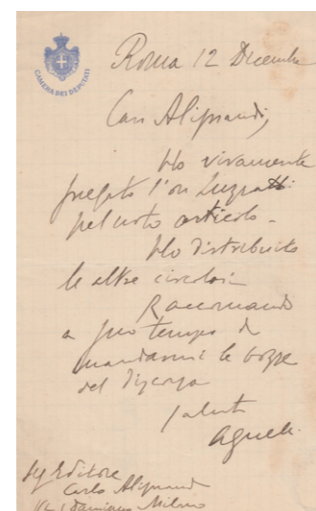 CAMERA DEI DEPUTATI
Roma 12 Dicembre
Caro Aliprandi,
Ho vivamente
pregato l'on Luzzatti
pel noto articolo -
Ho distribuito
le altre circolari
Raccomando
a suo tempo di
mandarmi le bozze
del discorso
Saluti
Agnelli
Sig Editore
Carlo Aliprandi
Milano